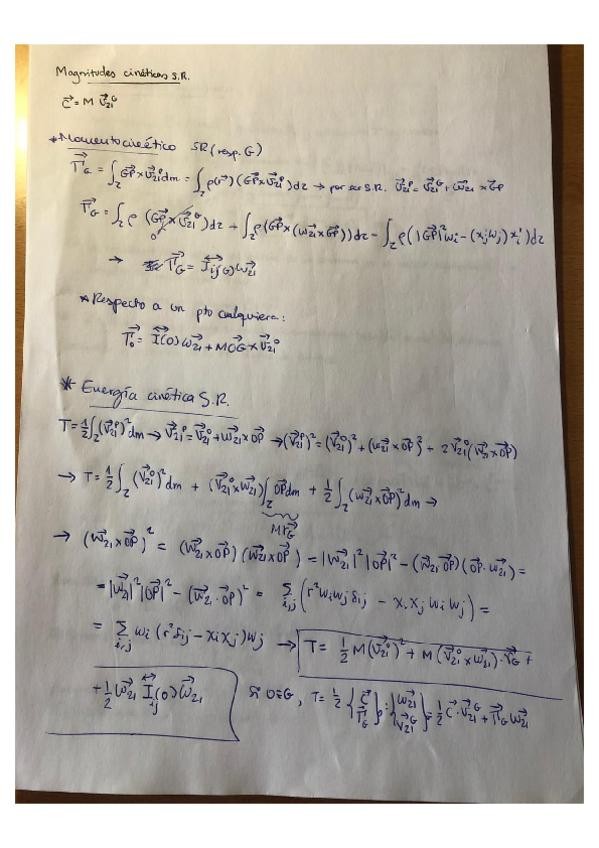 Magnitudes cinéticas S.R.
C⃗ = M V⃗₂₁ᴳ
* Momento cinético SR (resp. G)
Γ⃗_G = ∫_Σ GP⃗ × V⃗₂₁ᴾ dm = ∫_Σ ρ(r⃗) (GP⃗ × V⃗₂₁ᴾ) dτ → por ser S.R. V⃗₂₁ᴾ = V⃗₂₁ᴳ + ω⃗₂₁ × GP⃗
Γ⃗_G = ∫_Σ ρ (GP⃗ × V⃗₂₁ᴳ) dτ + ∫_Σ ρ (GP⃗ × (ω⃗₂₁ × GP⃗)) dτ = ∫_Σ ρ (|GP⃗|² ωᵢ − (xⱼωⱼ) xᵢ) dτ
0
→ Γ⃗_G = I⃡ᵢⱼ(G) ω⃗₂₁
* Respecto a un pto cualquiera:
Γ⃗₀ = I⃡(O) ω⃗₂₁ + M OG⃗ × V⃗₂₁⁰
* Energía cinética S.R.
T = ½ ∫_Σ (V⃗₂₁ᴾ)² dm → V⃗₂₁ᴾ = V⃗₂₁⁰ + ω⃗₂₁ × OP⃗ → (V⃗₂₁ᴾ)² = (V⃗₂₁⁰)² + (ω⃗₂₁ × OP⃗)² + 2 V⃗₂₁⁰ (ω⃗₂₁ × OP⃗)
→ T = ½ ∫_Σ (V⃗₂₁⁰)² dm + (V⃗₂₁⁰ × ω⃗₂₁) ∫_Σ OP⃗ dm + ½ ∫_Σ (ω⃗₂₁ × OP⃗)² dm →
M r⃗_G
→ (ω⃗₂₁ × OP⃗)² = (ω⃗₂₁ × OP⃗) (ω⃗₂₁ × OP⃗) = |ω⃗₂₁|² |OP⃗|² − (ω⃗₂₁ · OP⃗) (OP⃗ · ω⃗₂₁) =
= |ω⃗₂₁|² |OP⃗|² − (ω⃗₂₁ · OP⃗)² = Σᵢ,ⱼ (r² ωᵢ ωⱼ δᵢⱼ − xᵢ xⱼ ωᵢ ωⱼ) =
= Σᵢ,ⱼ ωᵢ (r² δᵢⱼ − xᵢ xⱼ) ωⱼ → T = ½ M (V⃗₂₁⁰)² + M (V⃗₂₁⁰ × ω⃗₂₁) · r⃗_G +
+ ½ ω⃗₂₁ I⃡ᵢⱼ(O) ω⃗₂₁ Si O ≡ G, T = ½ {C⃗ Γ⃗_G} : {ω⃗₂₁ V⃗₂₁ᴳ} = ½ C⃗ · V⃗₂₁ᴳ + Γ⃗_G ω⃗₂₁